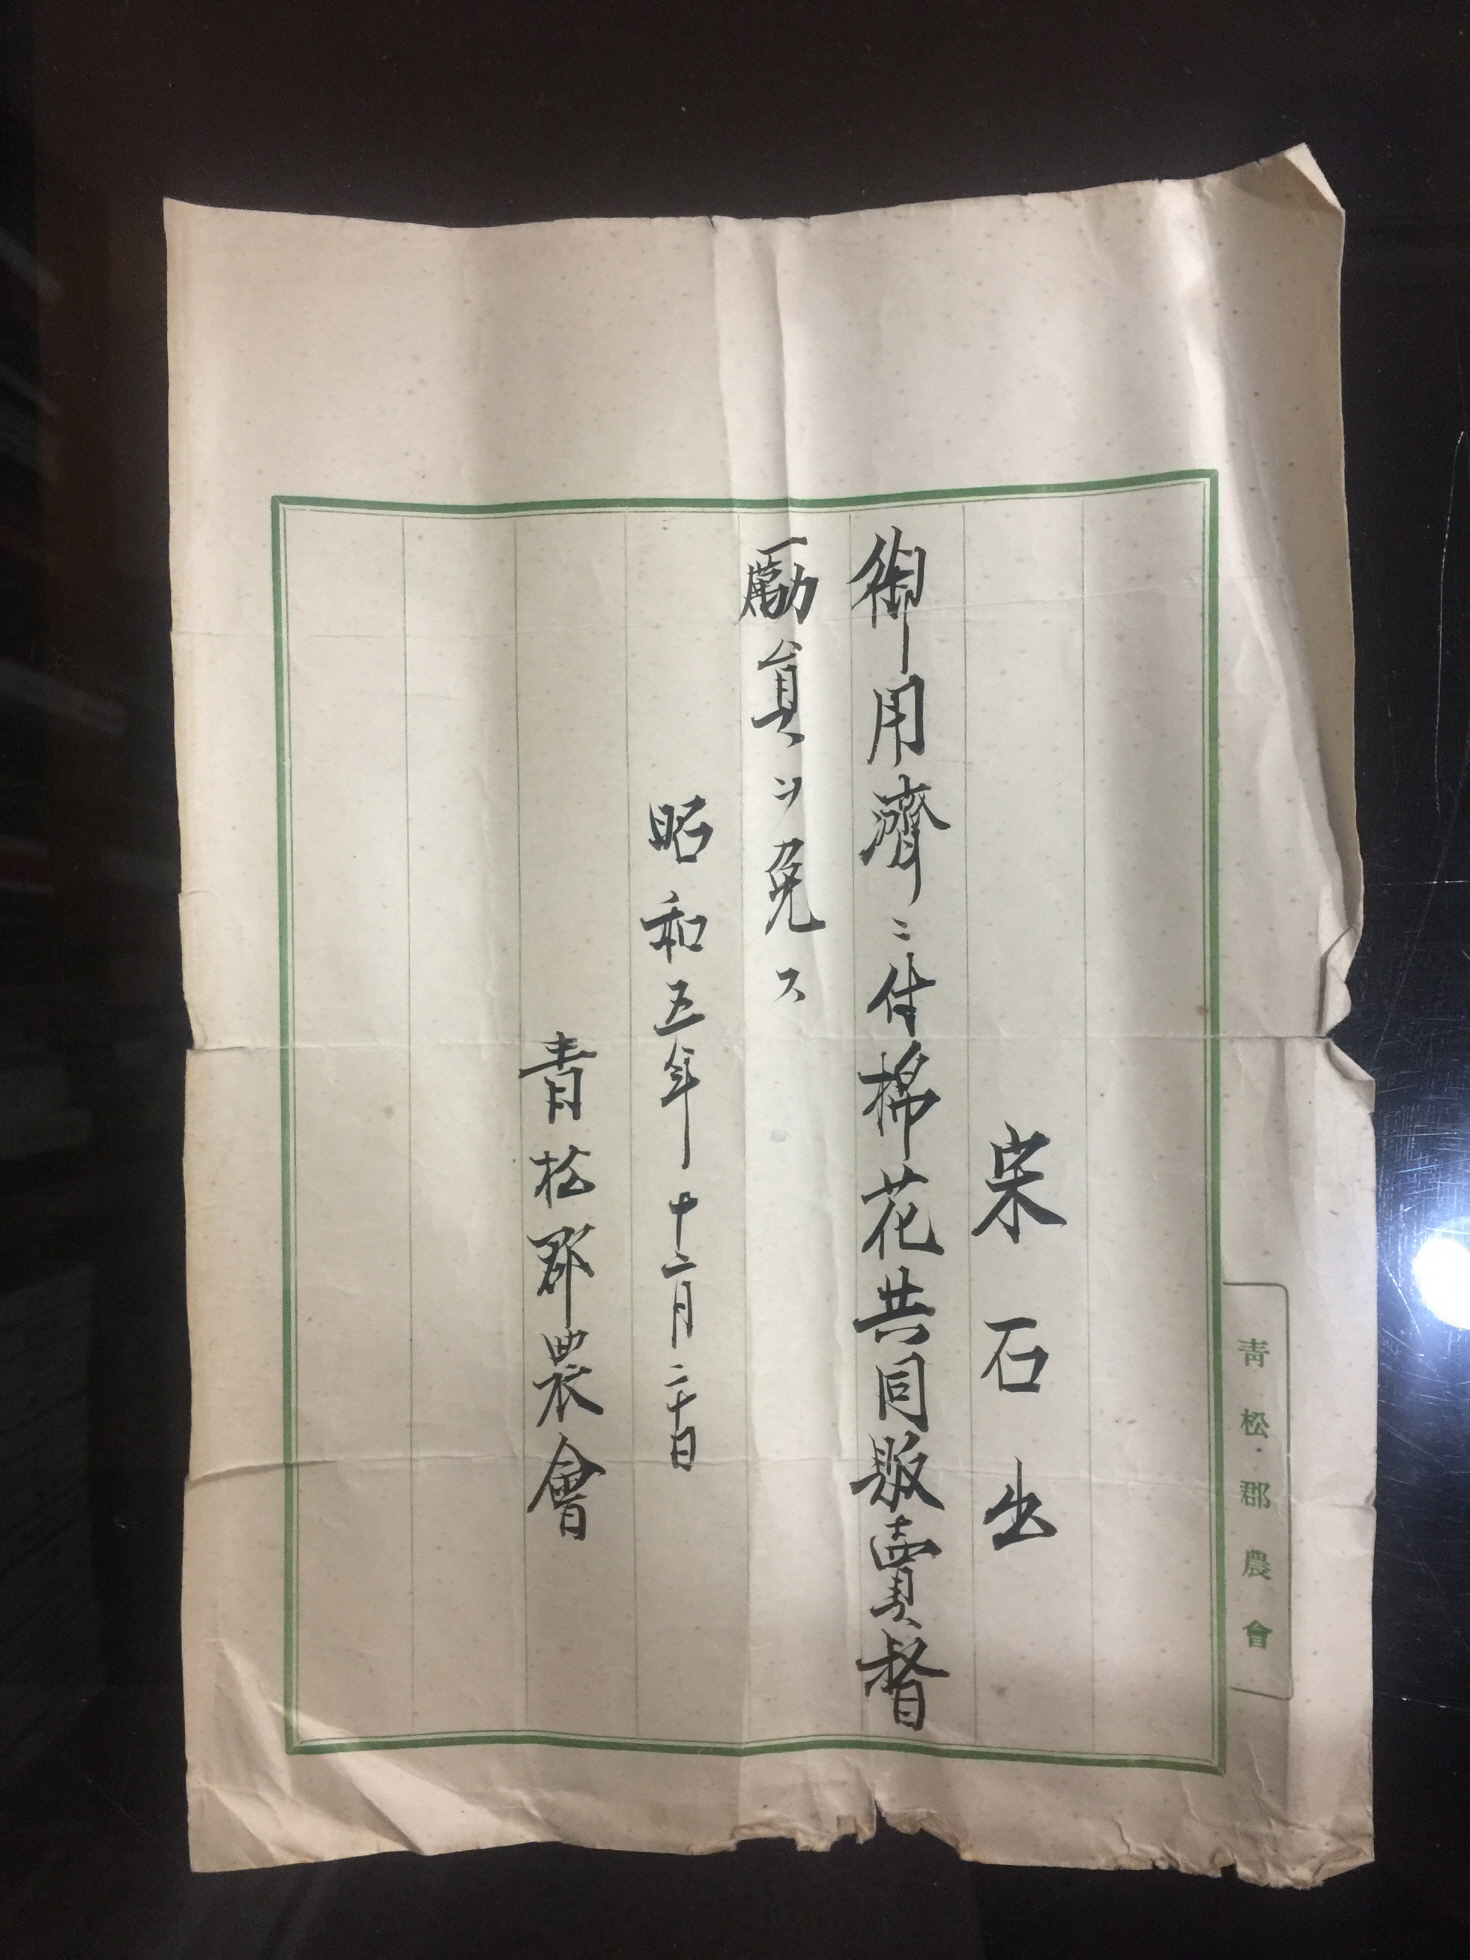 宋石出
御用濟ニ付棉花共同販賣督
勵員ヲ免ス
昭和五年十二月二十日
青松郡農會
青松郡農會